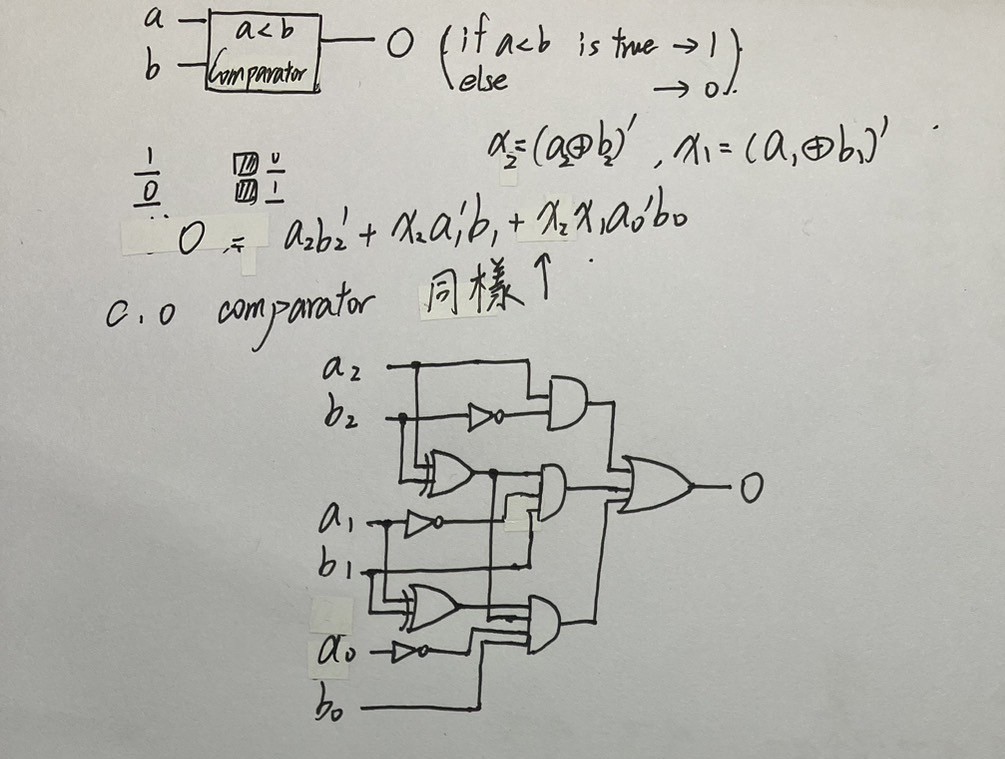 a
a<b
b
Comparator
O
(if a<b is true → 1
else → 0).
x₂=(a₂⊕b₂)', x₁=(a₁⊕b₁)'
1
0
0
1
O = a₂b₂' + x₂a₁'b₁ + x₂x₁a₀'b₀
C.O comparator 同樣↑
a₂
b₂
a₁
b₁
a₀
b₀
O